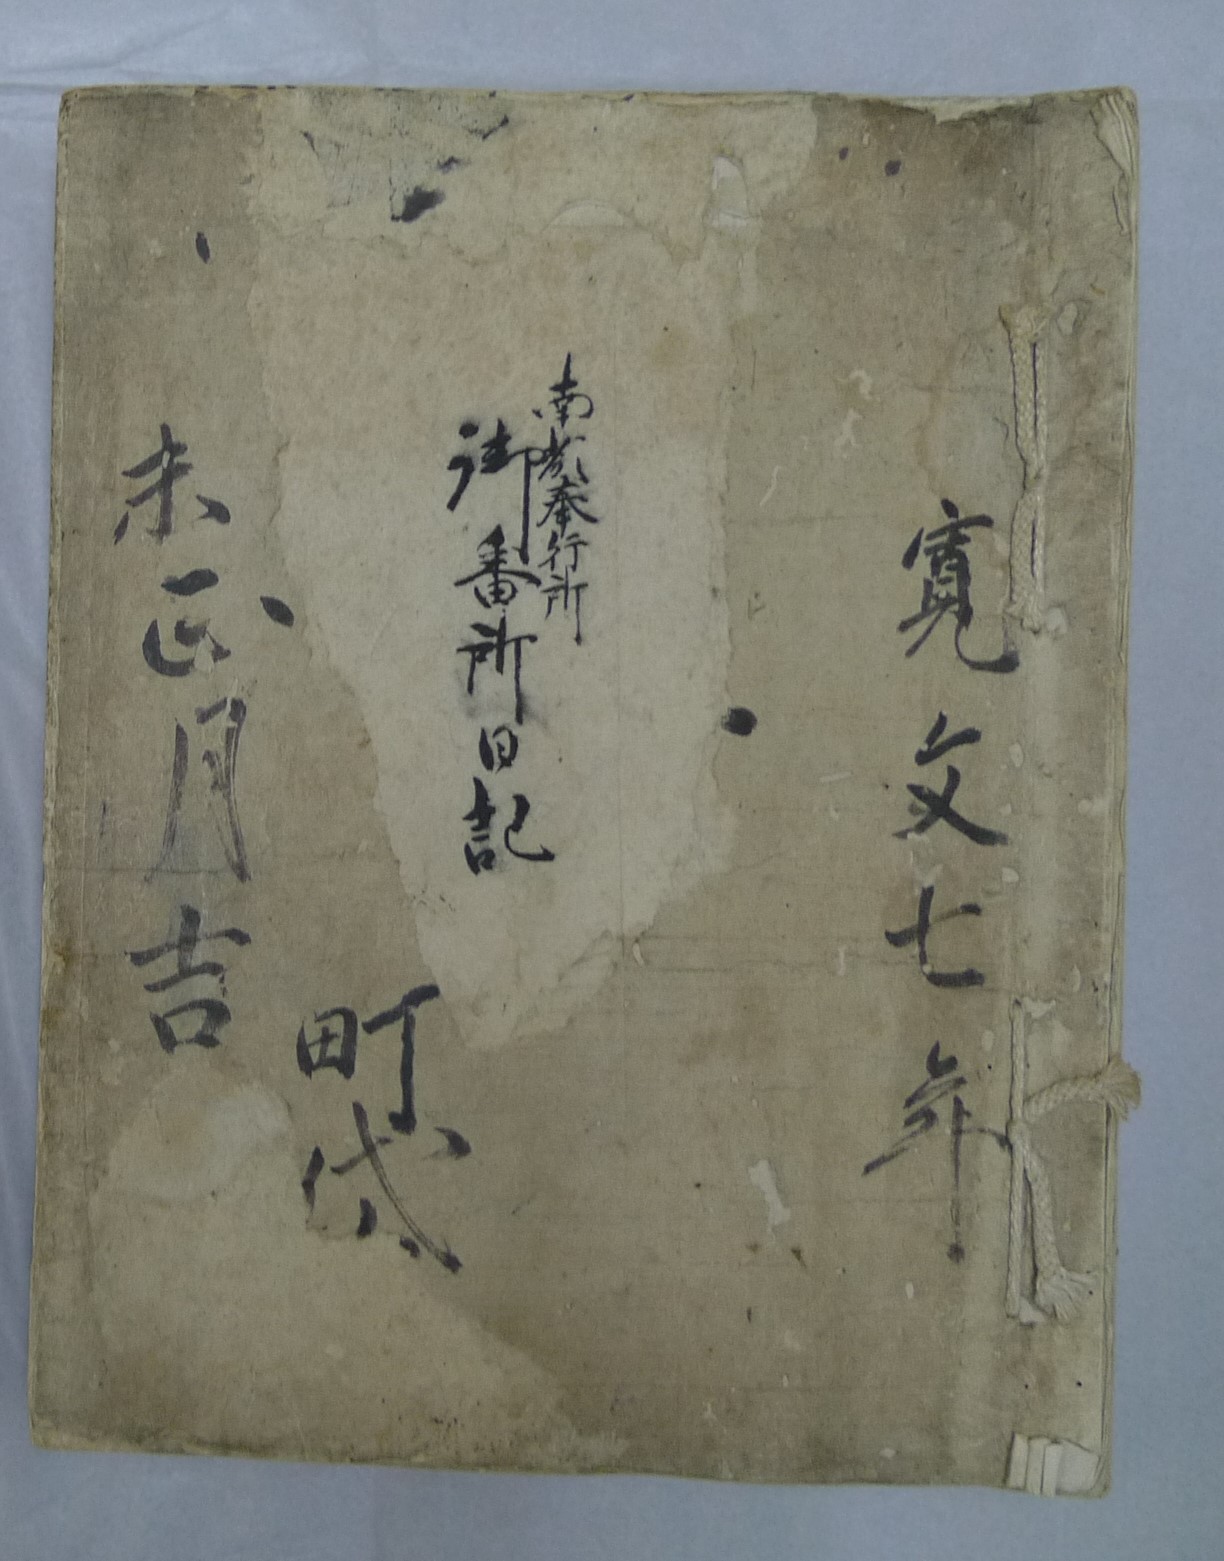 寛文七年
南都奉行所
御番所日記
町代
未正月吉